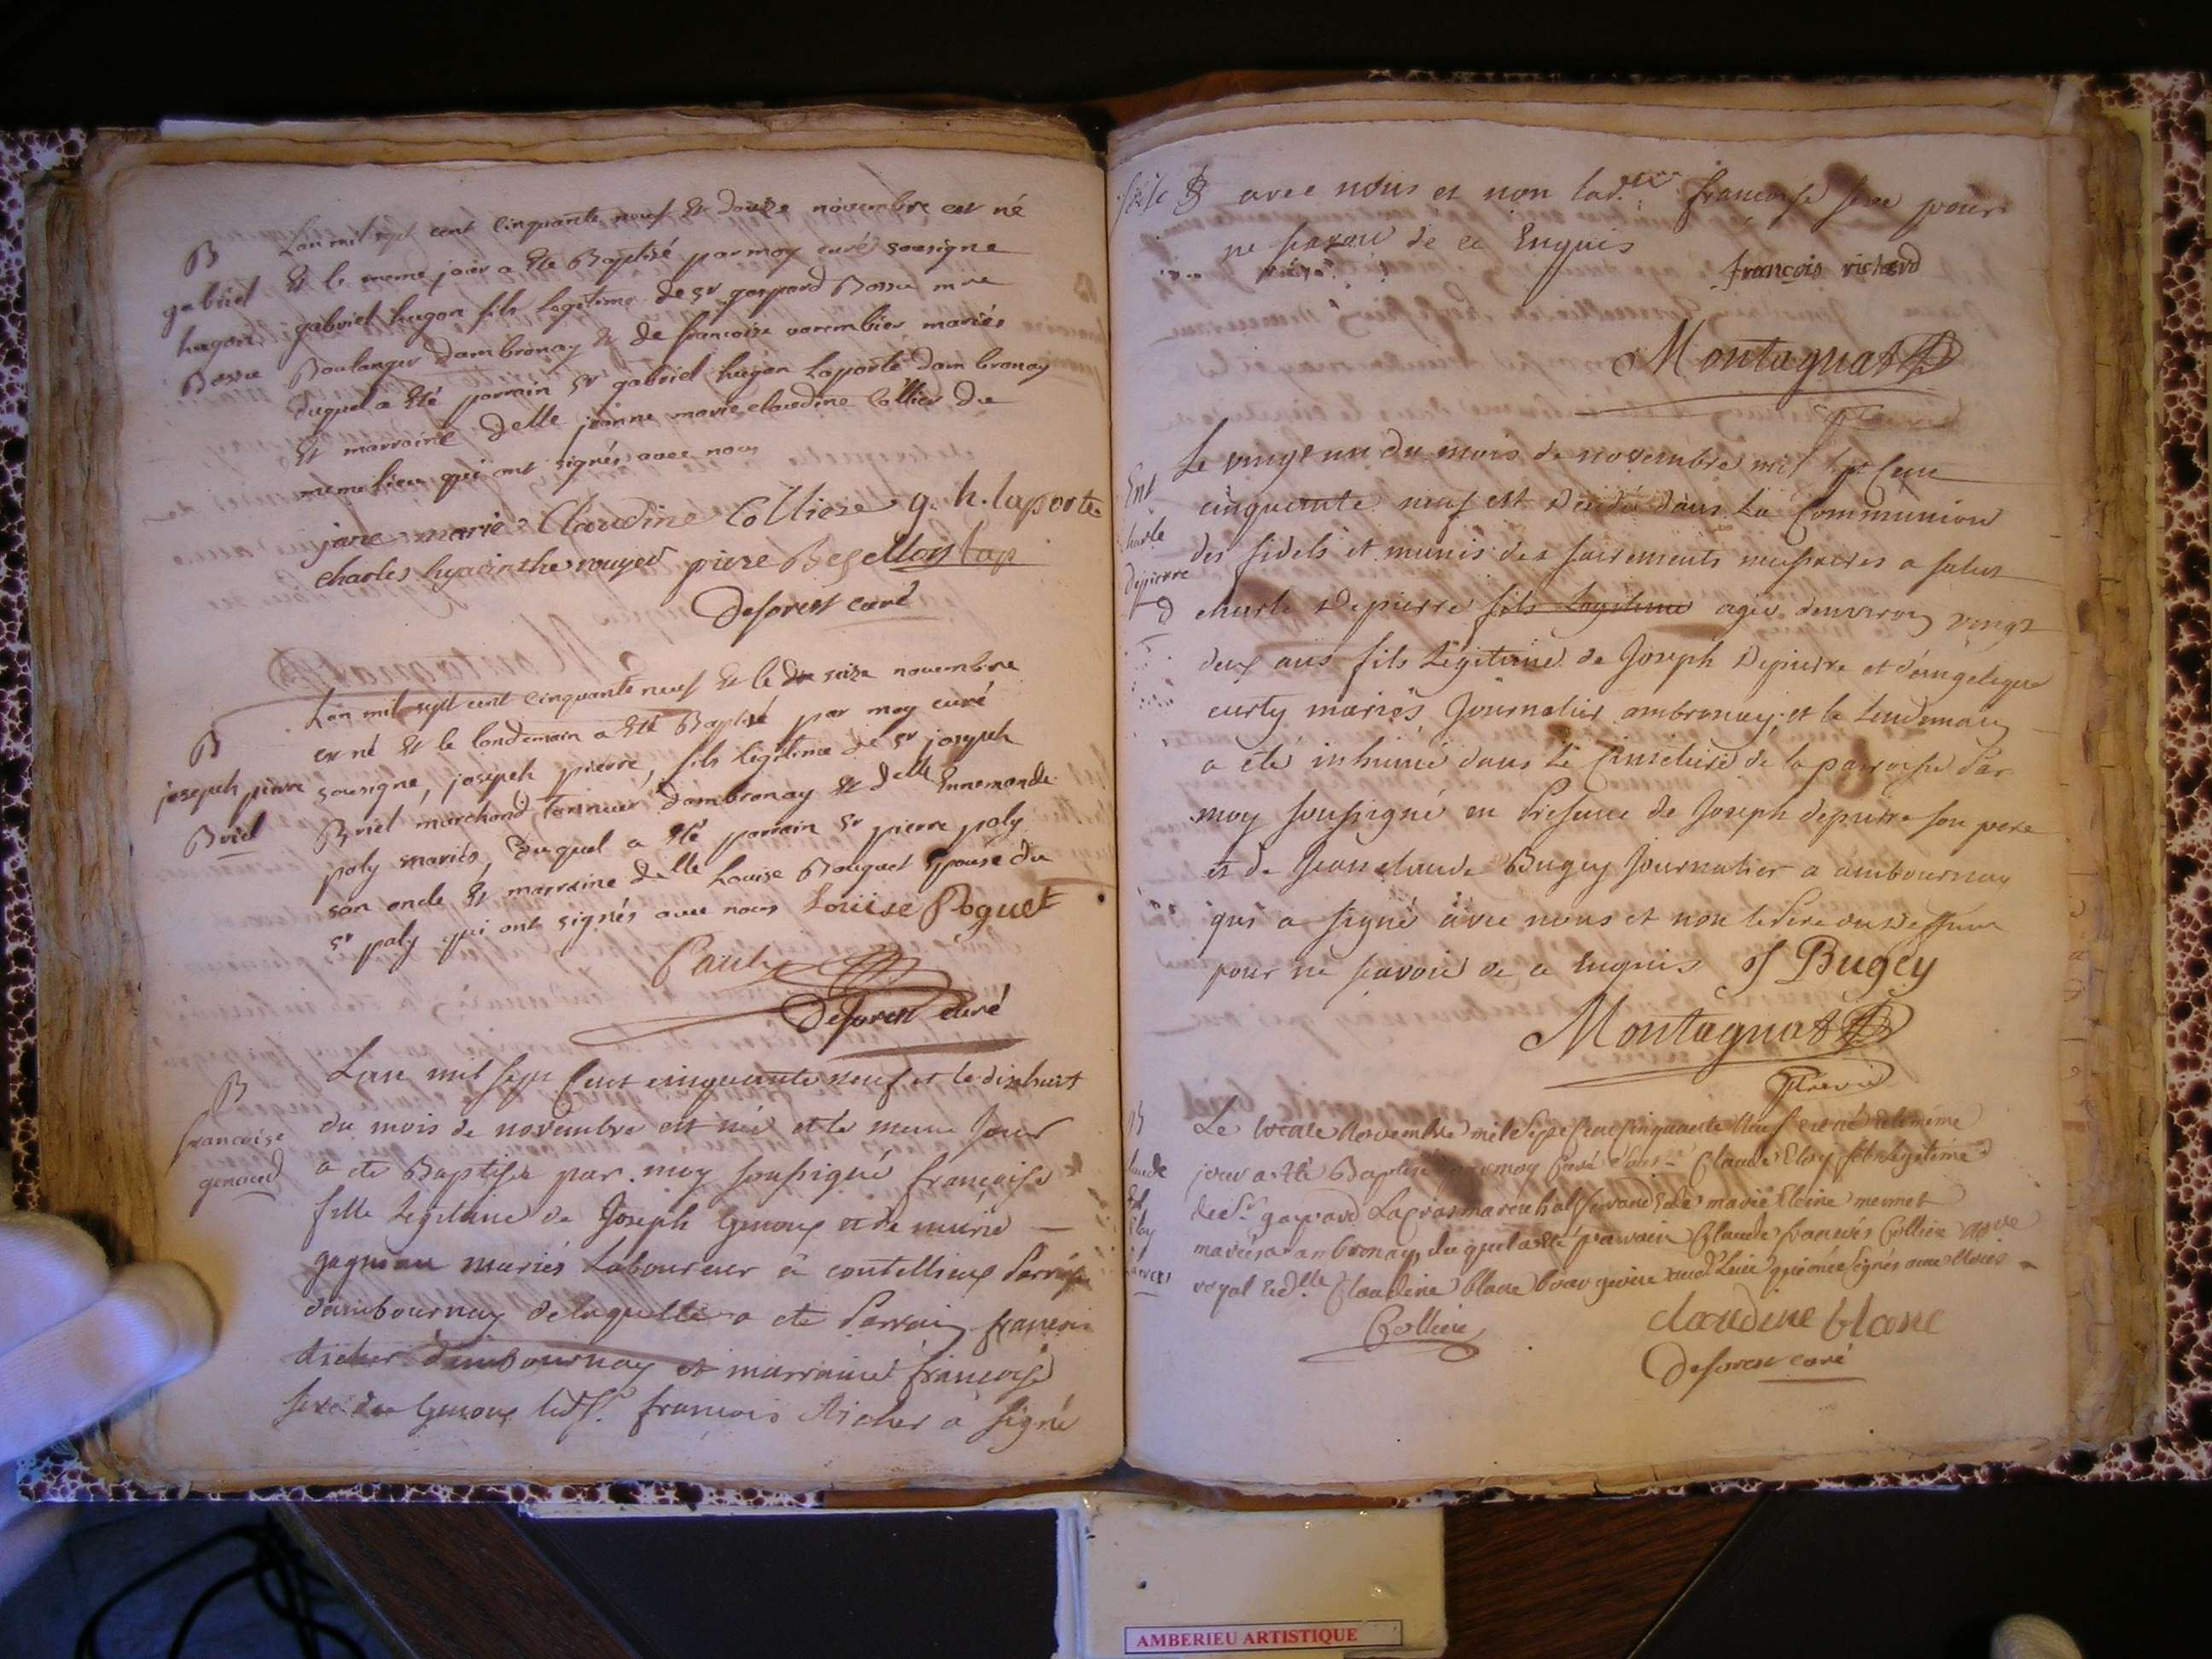 B
gabriel
hugon
Bossu
Lan mil sept cent cinquante neuf Et douze novembre est né
Et le meme jour a Ete Baptisé par moy curé sousigne
gabriel hugon fils legitime de Sr gaspard Bossu mre
Boulanger dambronay Et de francoise varembier mariés
duquel a Eté parrain Sr gabriel hugon Laporte dambronay
Et marraine delle jeanne marie claudine Collier du
meme lieu qui ont signés avec nous
jane marie Claudine Colliere g. h. laporte
charles hyacinthe rouyer pierre
deforest curé
B
joseph pierre
Briel
Lan mil sept cent cinquante neuf Et le seize novembre
est né Et le londemain a Eté Baptisé par moy curé
sousigne, joseph pierre, fils legitime de Sr joseph
Briel marchand tanneur dambronay Et delle Ennemonde
paly mariés, duquel a Eté parrain Sr pierre paly
son oncle Et marraine delle Louise Bouquet Epouse du
Sr paly qui ont signés avec nous Louise Poguet
Pauly
deforest curé
B
francoise
genoud
Lan mil sept Cent cinquante neuf et le dixhuit
du mois de novembre est née et le meme Jour
a ete Baptisée par moy soussigné francoise
fille Legitime de Joseph Genoux et de marie
gagneau mariés Laboureur à contellieux Parroisse
dambournay de laquelle a ete Parrain francois
Richer dambournay et marraine francoise
genoux led Sr. francois Richer a signé
avec nous et non lad. francoise pour
ne savoir de ce Enquis
francois richerd
Montagnat
Ent
charle
depierre
Le vingt un du mois de novembre mil sept Cent
cinquante neuf est décédé dans La Communion
des fidels et munis des sacrements necessaires a salut
charle Depierre fils Legitime agée denviron vingt
deux ans fils Legitime de Joseph Depierre et d'angelique
curty mariés Journalier ambronay, et le Lendemain
a été inhumé dans le Cimetiere de la parroisse par
moy soussigné en Presence de Joseph depierre son pere
et de Jean claude Bugey Journalier a ambournay
qui a signé avec nous et non le Pere
pour ne savoir de ce enquis J Bugey
Montagnat
B
Le novembre mil Sept Cent Cinquante Neuf est né et le même
jour a été Baptisé par moy Curé Claude Eloy fils legitime
de Sr gaspard Lacroix marechal et de marie mermet
mariés a ambronay, du quel a été parrain Claude francois Collier
royal et delle Claudine Blanc qui ont signés avec Nous
Colliere
claudine blanc
deforest curé
AMBERIEU ARTISTIQUE